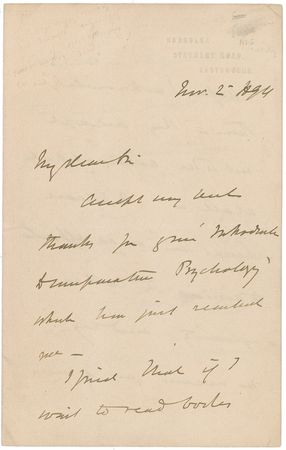 HODESLEA,
STAVELEY ROAD,
EASTBOURNE.
Nov. 2 1894
My dear Sir
Accept my best
thanks for your 'Introduction
to Comparative Psychology'
which has just reached
me —
I find that if I
wait to read books